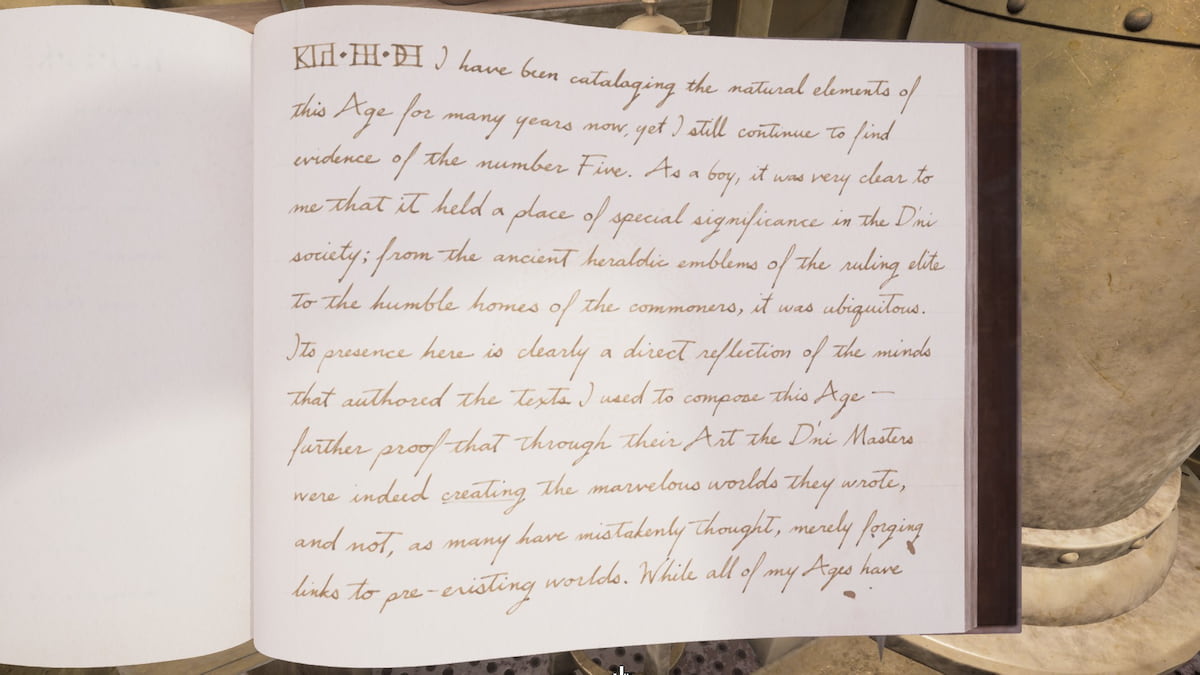 I have been cataloging the natural elements of
this Age for many years now, yet I still continue to find
evidence of the number Five. As a boy, it was very clear to
me that it held a place of special significance in the D'ni
society; from the ancient heraldic emblems of the ruling elite
to the humble homes of the commoners, it was ubiquitous.
Its presence here is clearly a direct reflection of the minds
that authored the texts I used to compose this Age —
further proof that through their Art the D'ni Masters
were indeed creating the marvelous worlds they wrote,
and not, as many have mistakenly thought, merely forging
links to pre-existing worlds. While all of my Ages have